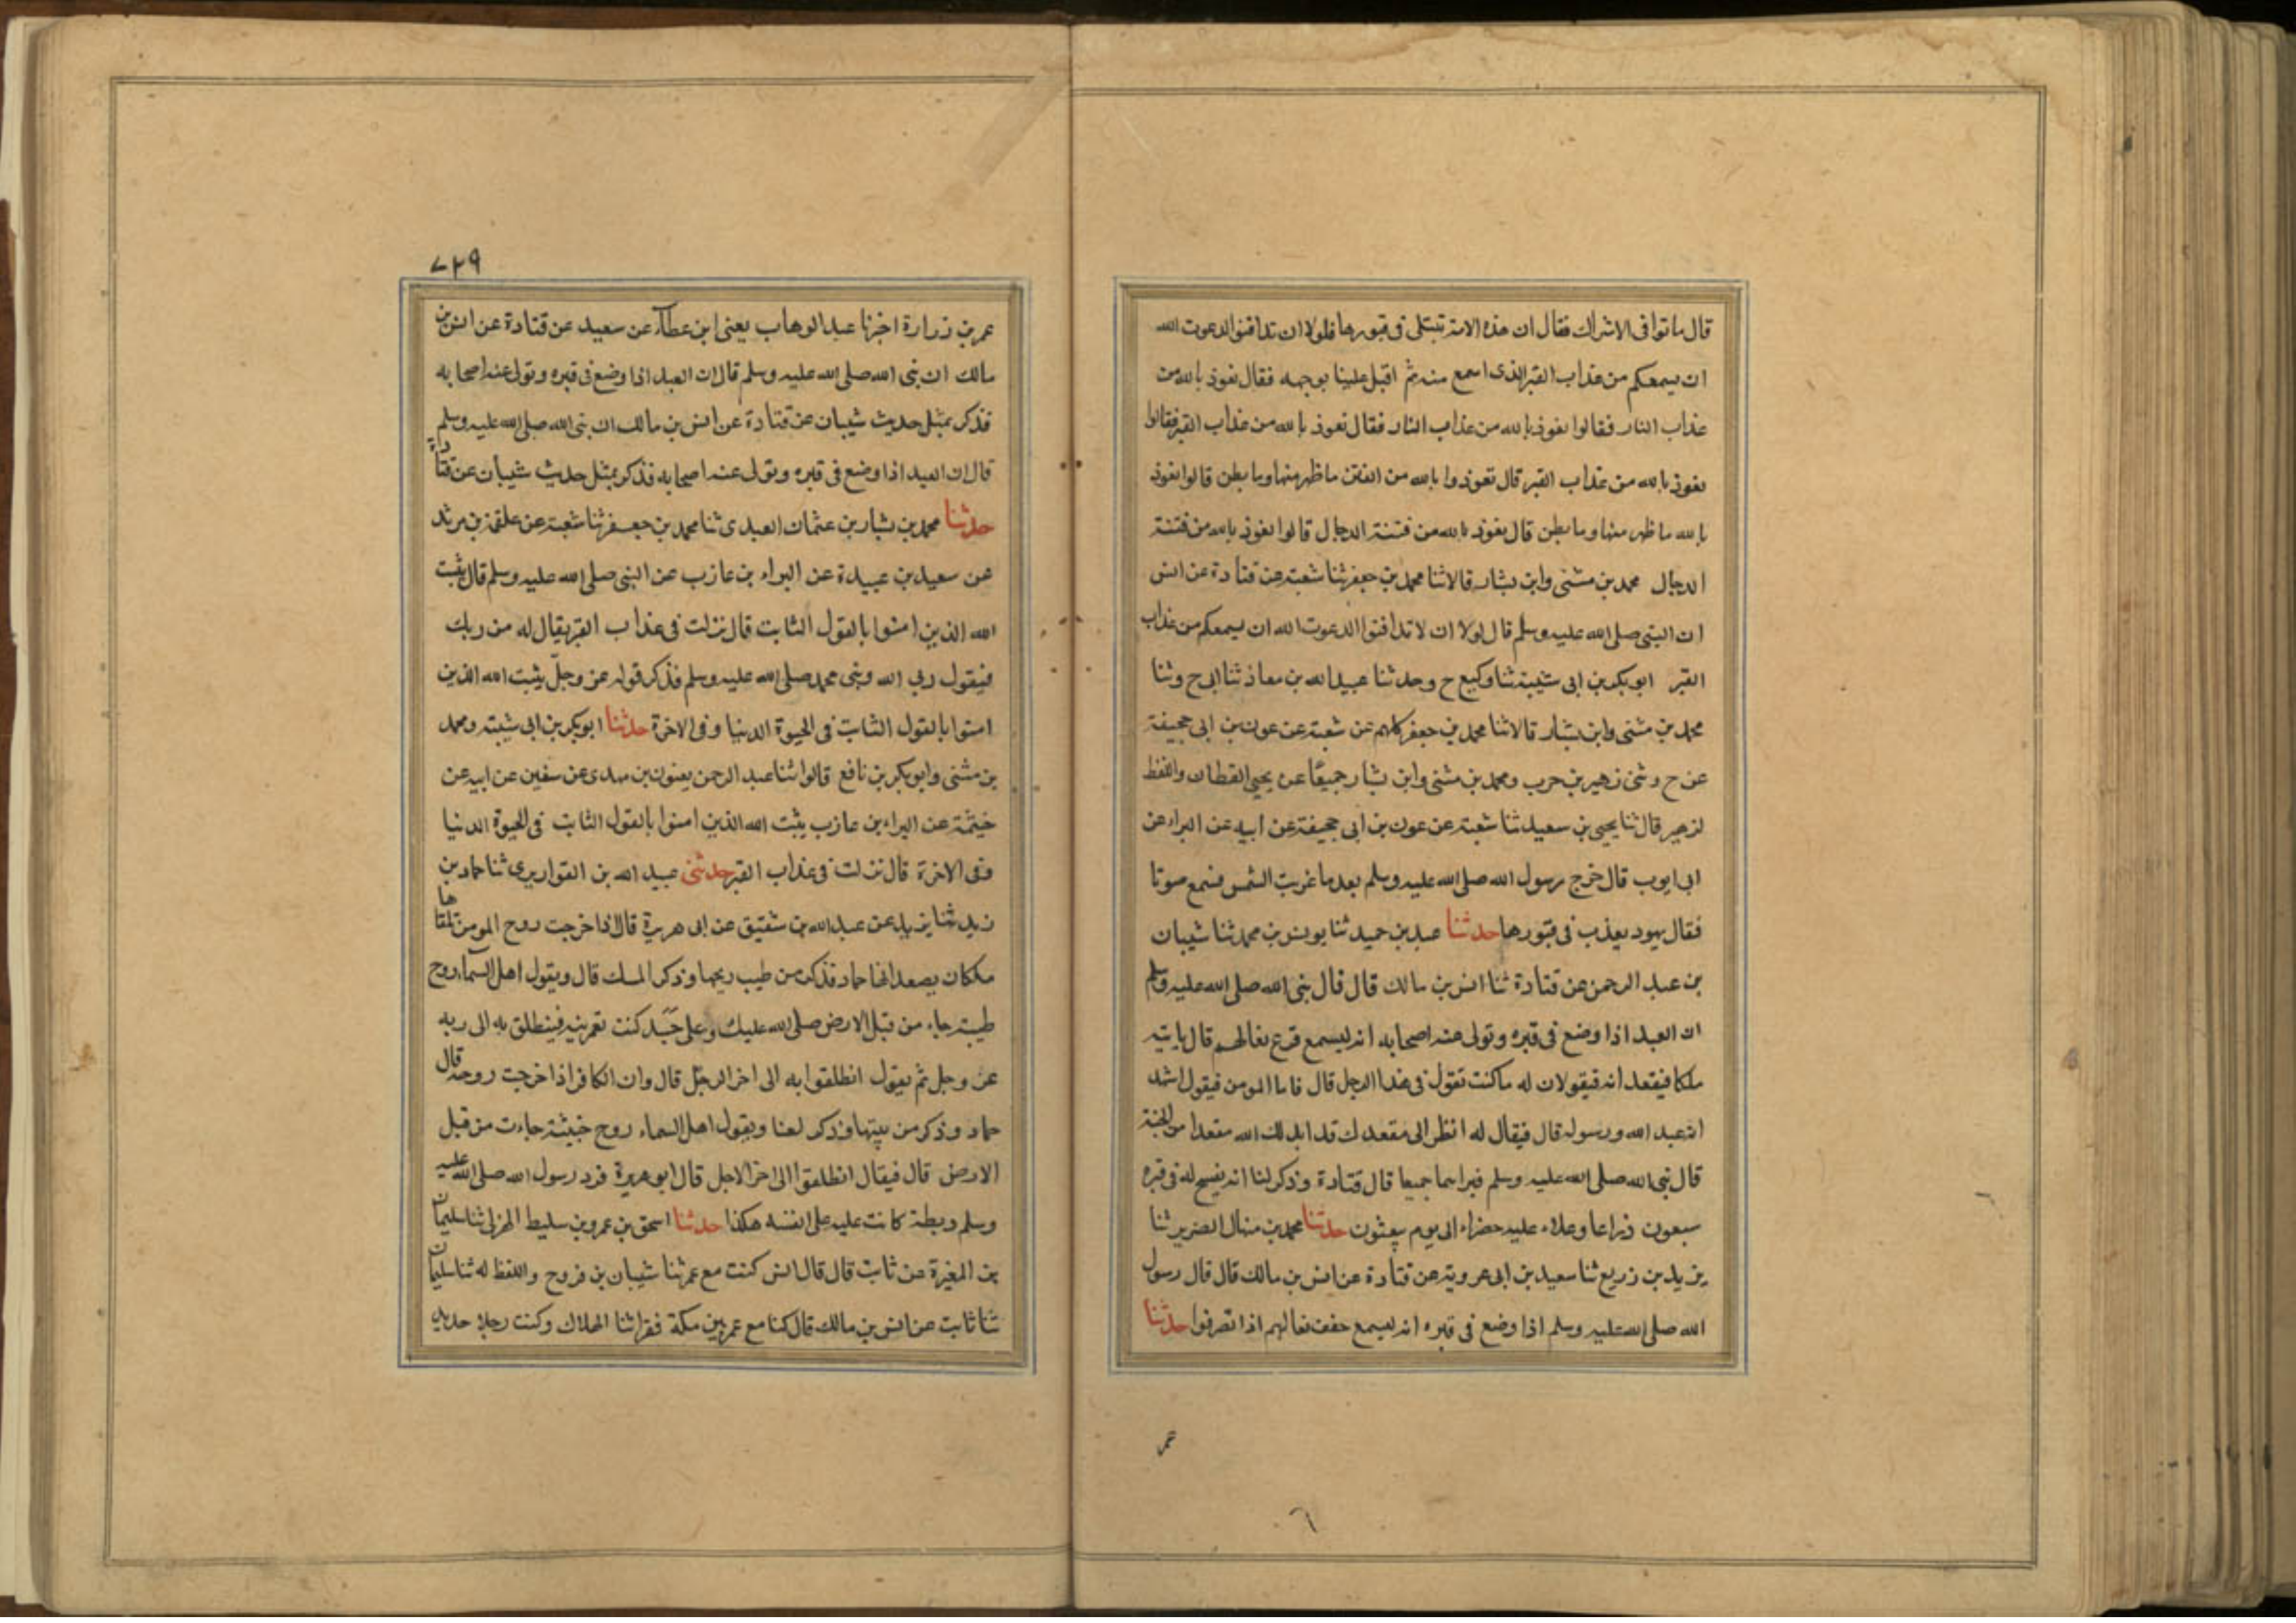 قال ماتوا فى الاشراك فقال ان هذه الامة تبتلى فى قبورها فلولا ان تدافنوا لدعوت الله
ان يسمعكم من عذاب القبر الذى اسمع منه ثم اقبل علينا بوجهه فقال نعوذ بالله من
عذاب النار فقالوا نعوذ بالله من عذاب النار فقال نعوذ بالله من عذاب القبر فقالوا
نعوذ بالله من عذاب القبر قال تعوذوا بالله من الفتن ما ظهر منها وما بطن قالوا نعوذ
بالله ما ظهر منها وما بطن قال نعوذ بالله من فتنة الدجال قالوا نعوذ بالله من فتنة
الدجال محمد بن مثنى وابن بشار قالا ثنا محمد بن جعفر ثنا شعبة عن قتادة عن انس
ان النبى صلى الله عليه وسلم قال لولا ان لا تدافنوا لدعوت الله ان يسمعكم من عذاب
القبر ابو بكر بن ابى شيبة ثنا وكيع ح وحدثنا عبيد الله بن معاذ ثنا ابى ح وثنا
محمد بن مثنى وابن بشار قالا ثنا محمد بن جعفر كلهم عن شعبة عن عون بن ابى جحيفة
عن ح وثنى زهير بن حرب ومحمد بن مثنى وابن بشار جميعًا عن يحيى القطان واللفظ
لزهير قال ثنا يحيى بن سعيد ثنا شعبة عن عون بن ابى جحيفة عن ابيه عن البراء عن
ابى ايوب قال خرج رسول الله صلى الله عليه وسلم بعد ما غربت الشمس فسمع صوتا
فقال يهود يعذب فى قبورها حدثنا عبد بن حميد ثنا يونس بن محمد ثنا شيبان
بن عبد الرحمن عن قتادة ثنا انس بن مالك قال قال نبى الله صلى الله عليه وسلم
ان العبد اذا وضع فى قبره وتولى عنه اصحابه انه ليسمع قرع نعالهم قال ياتيه
ملكا فيقعد انه فيقولان له ما كنت تقول فى هذا الرجل قال فاما المومن فيقول اشهد
انه عبد الله ورسوله قال فيقال له انظر الى مقعدك قد ابدلك الله مقعدا من الجنة
قال نبى الله صلى الله عليه وسلم فيراهما جميعا قال قتادة وذكر لنا انه يفسح له فى قبره
سبعون ذراعا وعلاء عليه خضراء الى يوم يبعثون حدثنا محمد بن منهال الضرير ثنا
يزيد بن زريع ثنا سعيد بن ابى عروبة عن قتادة عن انس بن مالك قال قال رسول
الله صلى الله عليه وسلم اذا وضع فى قبره انه ليسمع خفق نعالهم اذا انصرفوا حدثنا
عمر
٦
٧٣٩
عمر بن زرارة اخبرنا عبد الوهاب يعنى ابن عطاء عن سعيد عن قتادة عن انس بن
مالك ان نبى الله صلى الله عليه وسلم قال ان العبد اذا وضع فى قبره وتولى عنه اصحابه
فذكر بمثل حديث شيبان عن قتادة عن انس بن مالك ان نبى الله صلى الله عليه وسلم
قال ان العبد اذا وضع فى قبره وتولى عنه اصحابه فذكر بمثل حديث شيبان عن قتادة
حدثنا محمد بن بشار بن عثمان العبدى ثنا محمد بن جعفر ثنا شعبة عن علقمة بن مرثد
عن سعيد بن عبيدة عن البراء بن عازب عن النبى صلى الله عليه وسلم قال يثبت
الله الذين امنوا بالقول الثابت قال نزلت فى عذاب القبر يقال له من ربك
فيقول ربى الله ونبى محمد صلى الله عليه وسلم فذكر قوله عز وجل يثبت الله الذين
امنوا بالقول الثابت فى الحيوة الدنيا وفى الاخرة حدثنا ابو بكر بن ابى شيبة ومحمد
بن مثنى وابو بكر بن نافع قالوا ثنا عبد الرحمن يعنون بن مهدى عن سفين عن ابيه عن
خيثمة عن البراء بن عازب يثبت الله الذين امنوا بالقول الثابت فى الحيوة الدنيا
وفى الاخرة قال نزلت فى عذاب القبر حدثنى عبيد الله بن القواريرى ثنا حماد بن
زيد ثنا يزيد عن عبد الله بن شقيق عن ابى هريرة قال اذا خرجت روح المومن تلقاها
ملكان يصعدانها حماد فذكر من طيب ريحها وذكر المسك قال ويقول اهل السماء روح
طيبة جاء من قبل الارض صلى الله عليك وعلى جسد كنت تعمرينه فينطلق به الى ربه
عز وجل ثم يقول انطلقوا به الى اخر الرجل قال وان الكافر اذا خرجت روحه قال
حماد وذكر من بيتها وذكر لعنا ويقول اهل السماء روح خبيثة جاءت من قبل
الارض قال فيقال انطلقوا الى اخر الاجل قال ابو هريرة فرد رسول الله صلى الله عليه
وسلم ريطة كانت عليه على انفسه هكذا حدثنا اسحق بن عمرو بن سليط الهزلى ثنا سليمان
بن المغيرة عن ثابت قال قال انس كنت مع عمر ثنا شيبان بن فروح واللفظ له ثنا سليمان
ثنا ثابت عن انس بن مالك قال كنا مع عمر بين مكة فقراثنا الهلاك وكنت رجلا حديد